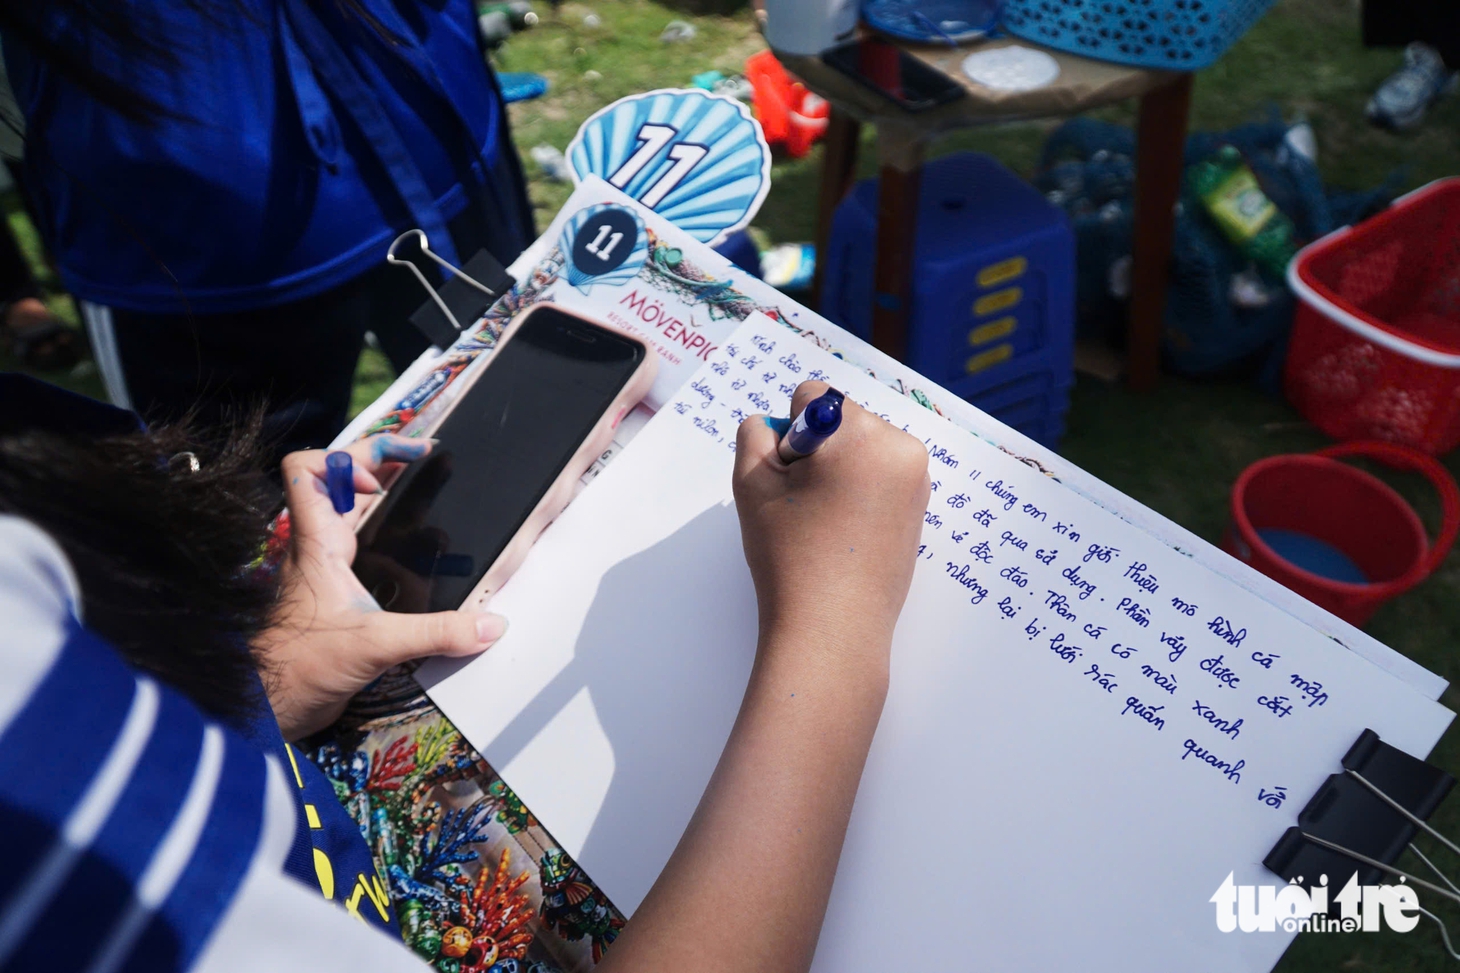 11
11
MÖVENPIC
RESORT CAM RANH
Kính chào Nhóm 11 chúng em xin giới thiệu mô hình cá mập
đồ đã qua sử dụng. Phần vây được cắt
vẻ độc đáo. Thân cá có màu xanh
dương nhưng lại bị lưới rác quấn quanh với
túi nilon,
tuổi trẻ
online